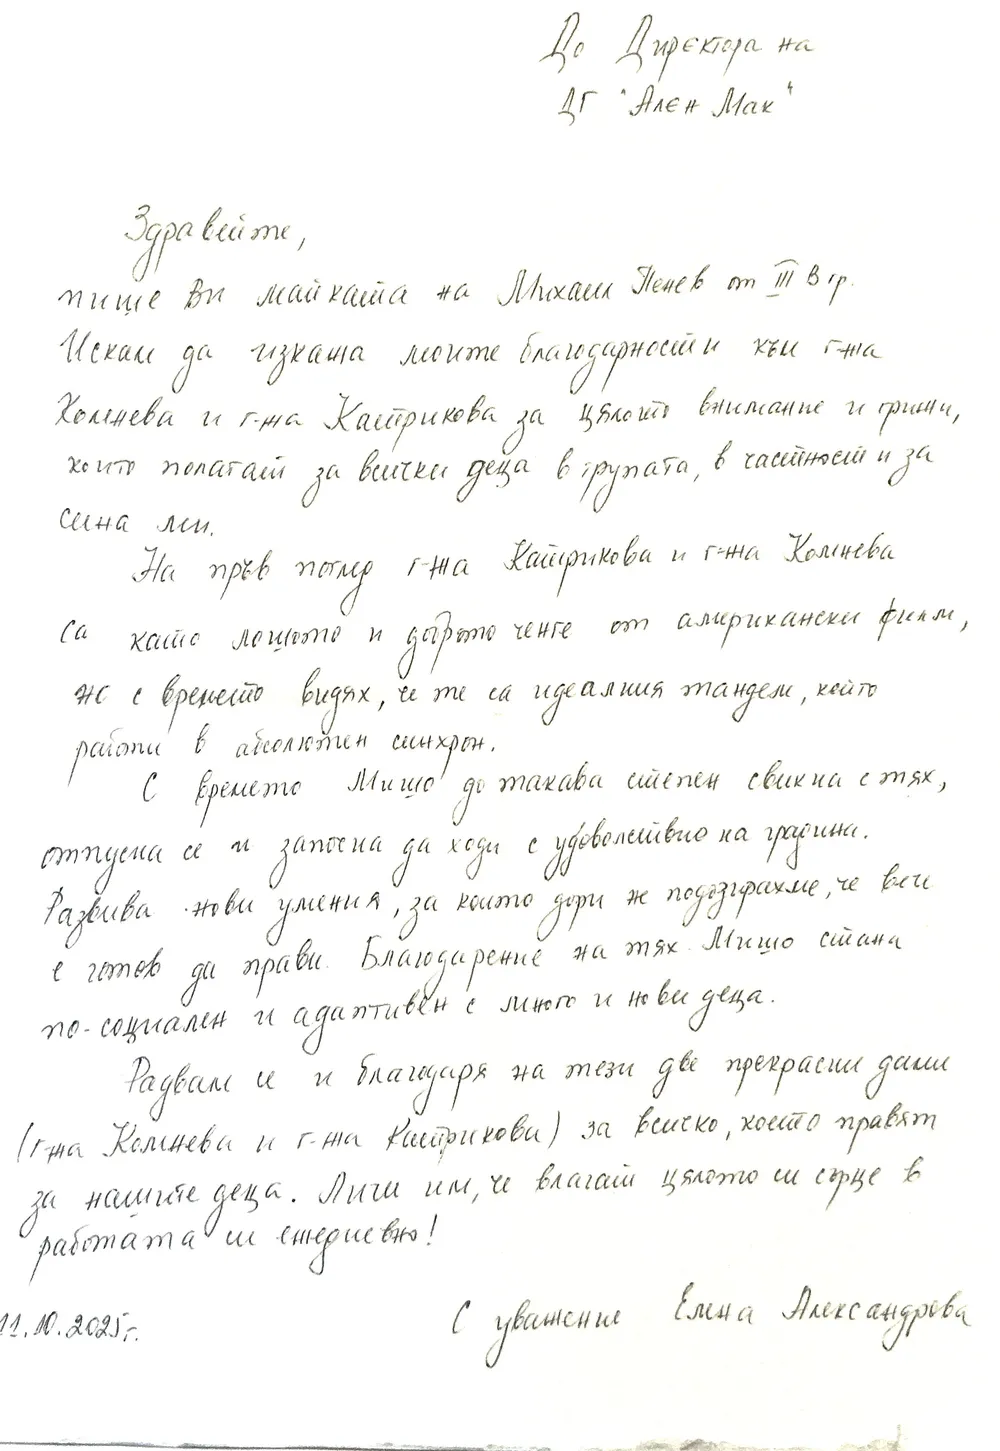 До Директора на
ДГ "Ален Мак"
Здравейте,
пише Ви майката на Михаил Пенев от III В гр.
Искам да изкажа моите благодарности към г-жа
Колинева и г-жа Кастрикова за цялото внимание и грижи,
които полагат за всички деца в групата, в частност и за
сина ми.
На пръв поглед г-жа Катрикова и г-жа Колинева
са като лошото и доброто ченге от американски филм,
но с времето видях, че те са идеалния тандем, който
работи в абсолютен синхрон.
С времето Мишо до такава степен свикна с тях,
отпусна се и започна да ходи с удоволствие на градина.
Развива нови умения, за които дори не подозирахме, че вече
е готов да прави. Благодарение на тях Мишо стана
по-социален и адаптивен с много и нови деца.
Радвам се и благодаря на тези две прекрасни дами
(г-жа Колинева и г-жа Кастрикова) за всичко, което правят
за нашите деца. Личи им, че влагат цялото си сърце в
работата си ежедневно!
11.10.2025г.
С уважение Елена Александрова